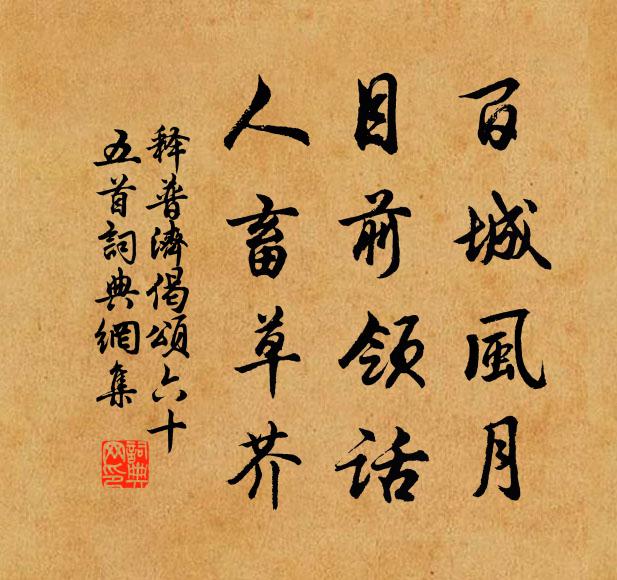 百城風月
目前領话
人畜草芥
釋普濟偈頌六十
五首詞典網集
詞典
网印